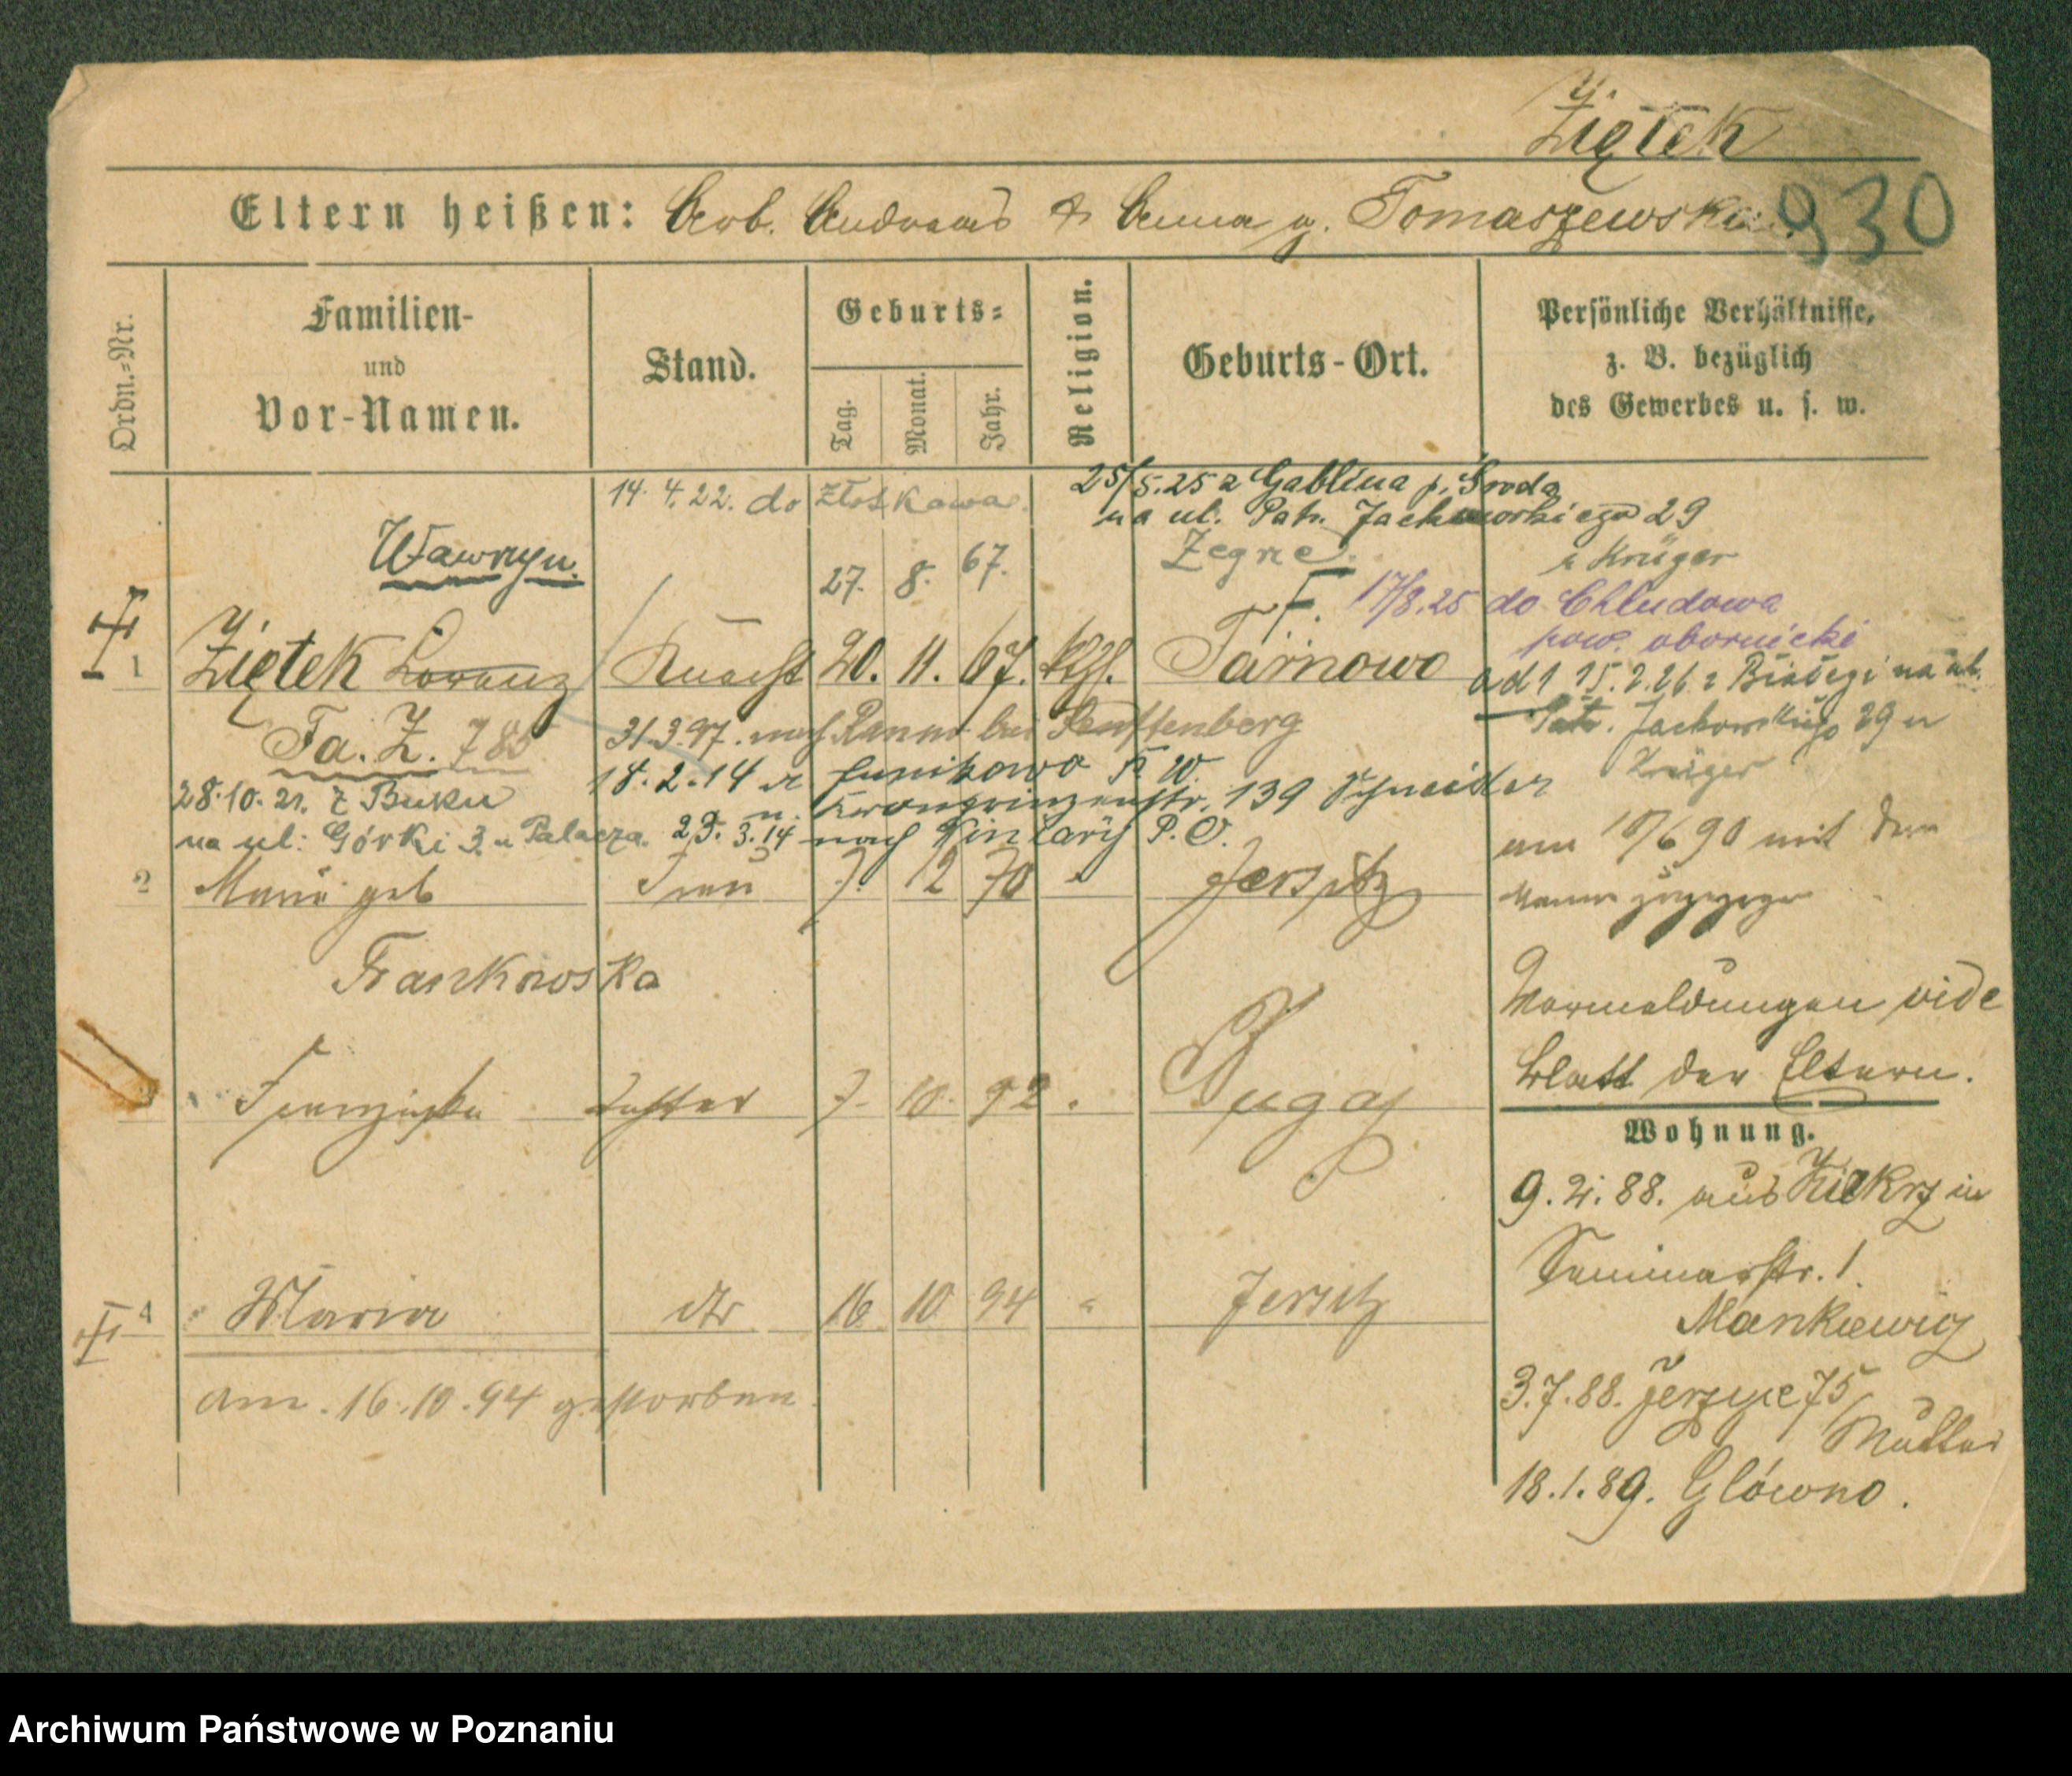 Ziętek
Eltern heißen: Arb. Andreas & Anna g. Tomaszewska
930
Ordn.-Nr.
Familien-
und
Vor-Namen.
Stand.
Geburts-
Tag.
Monat.
Jahr.
Religion.
Geburts-Ort.
Persönliche Verhältnisse,
z. B. bezüglich
des Gewerbes u. s. w.
14. 4. 22. do Złotkowa
25/5.25 z Gablina p. Środa
na ul. Patr. Jackowskiego 29
u Krüger
Wawrzyn.
27. 8. 67.
Zegrze
F. 17/8.25 do Chludowa
pow. obornicki
1 Ziętek Lorenz Knecht 20. 11. 67. kth. Tarnowo
ad 1 25. 2. 26 z na ul.
Patr. Jackowskiego 29 u
Krüger
Fa. Z. 785
31.3.97. nach bei Senftenberg
18. 2. 14 Junikowo P. W.
n. Kronprinzenstr. 139 Schneider
28. 10. 21. z Buku
na ul: Górki 3 u Palacza. 23. 3. 14 nach P. O.
am 10/6 90 mit dem
Manne zugezogen
2 Marie geb Frau 7. 12 70 " Jersitz
Frankowska
Vormeldungen vide
Blatt der Eltern.
3 Franziska Tochter 7. 10. 92 " Bugaj
Wohnung.
9. 2. 88. aus Kiekrz in
Seminarstr. 1.
Mankiewicz
4 Maria dto 16 10 94 " Jersitz
am. 16. 10. 94 gestorben
3. 7. 88. Jerzyce 75
Mutter
18. 1. 89. Główno.
Archiwum Państwowe w Poznaniu